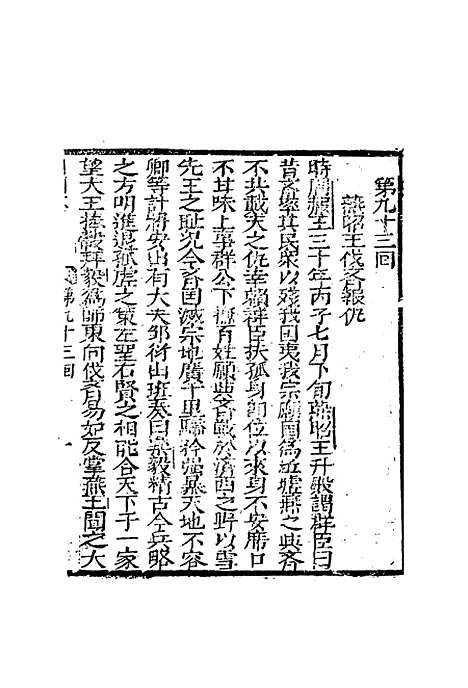 第九十三回
燕昭王伐齊報仇
時周赧王三十年丙子七月下旬燕昭王升殿謂群臣曰
昔齊率其民衆以殘我國夷我宗廟國為丘墟燕之與齊
不共戴天之仇幸賴群臣扶孤身即位以來身不安席口
不甘味上事群公下撫百姓願與齊戰於濟西之野以雪
先王之耻況今齊國滅宗地廣千里驕矜強暴天地不容
卿等計將安出有大夫鄒衍出班奏曰樂毅精古今兵略
之方明進退孤虛之策左聖右賢之相能合天下于一家
望大王捧轂拜毅為帥東向伐齊易如反掌燕王聞之大
第九十三回
一